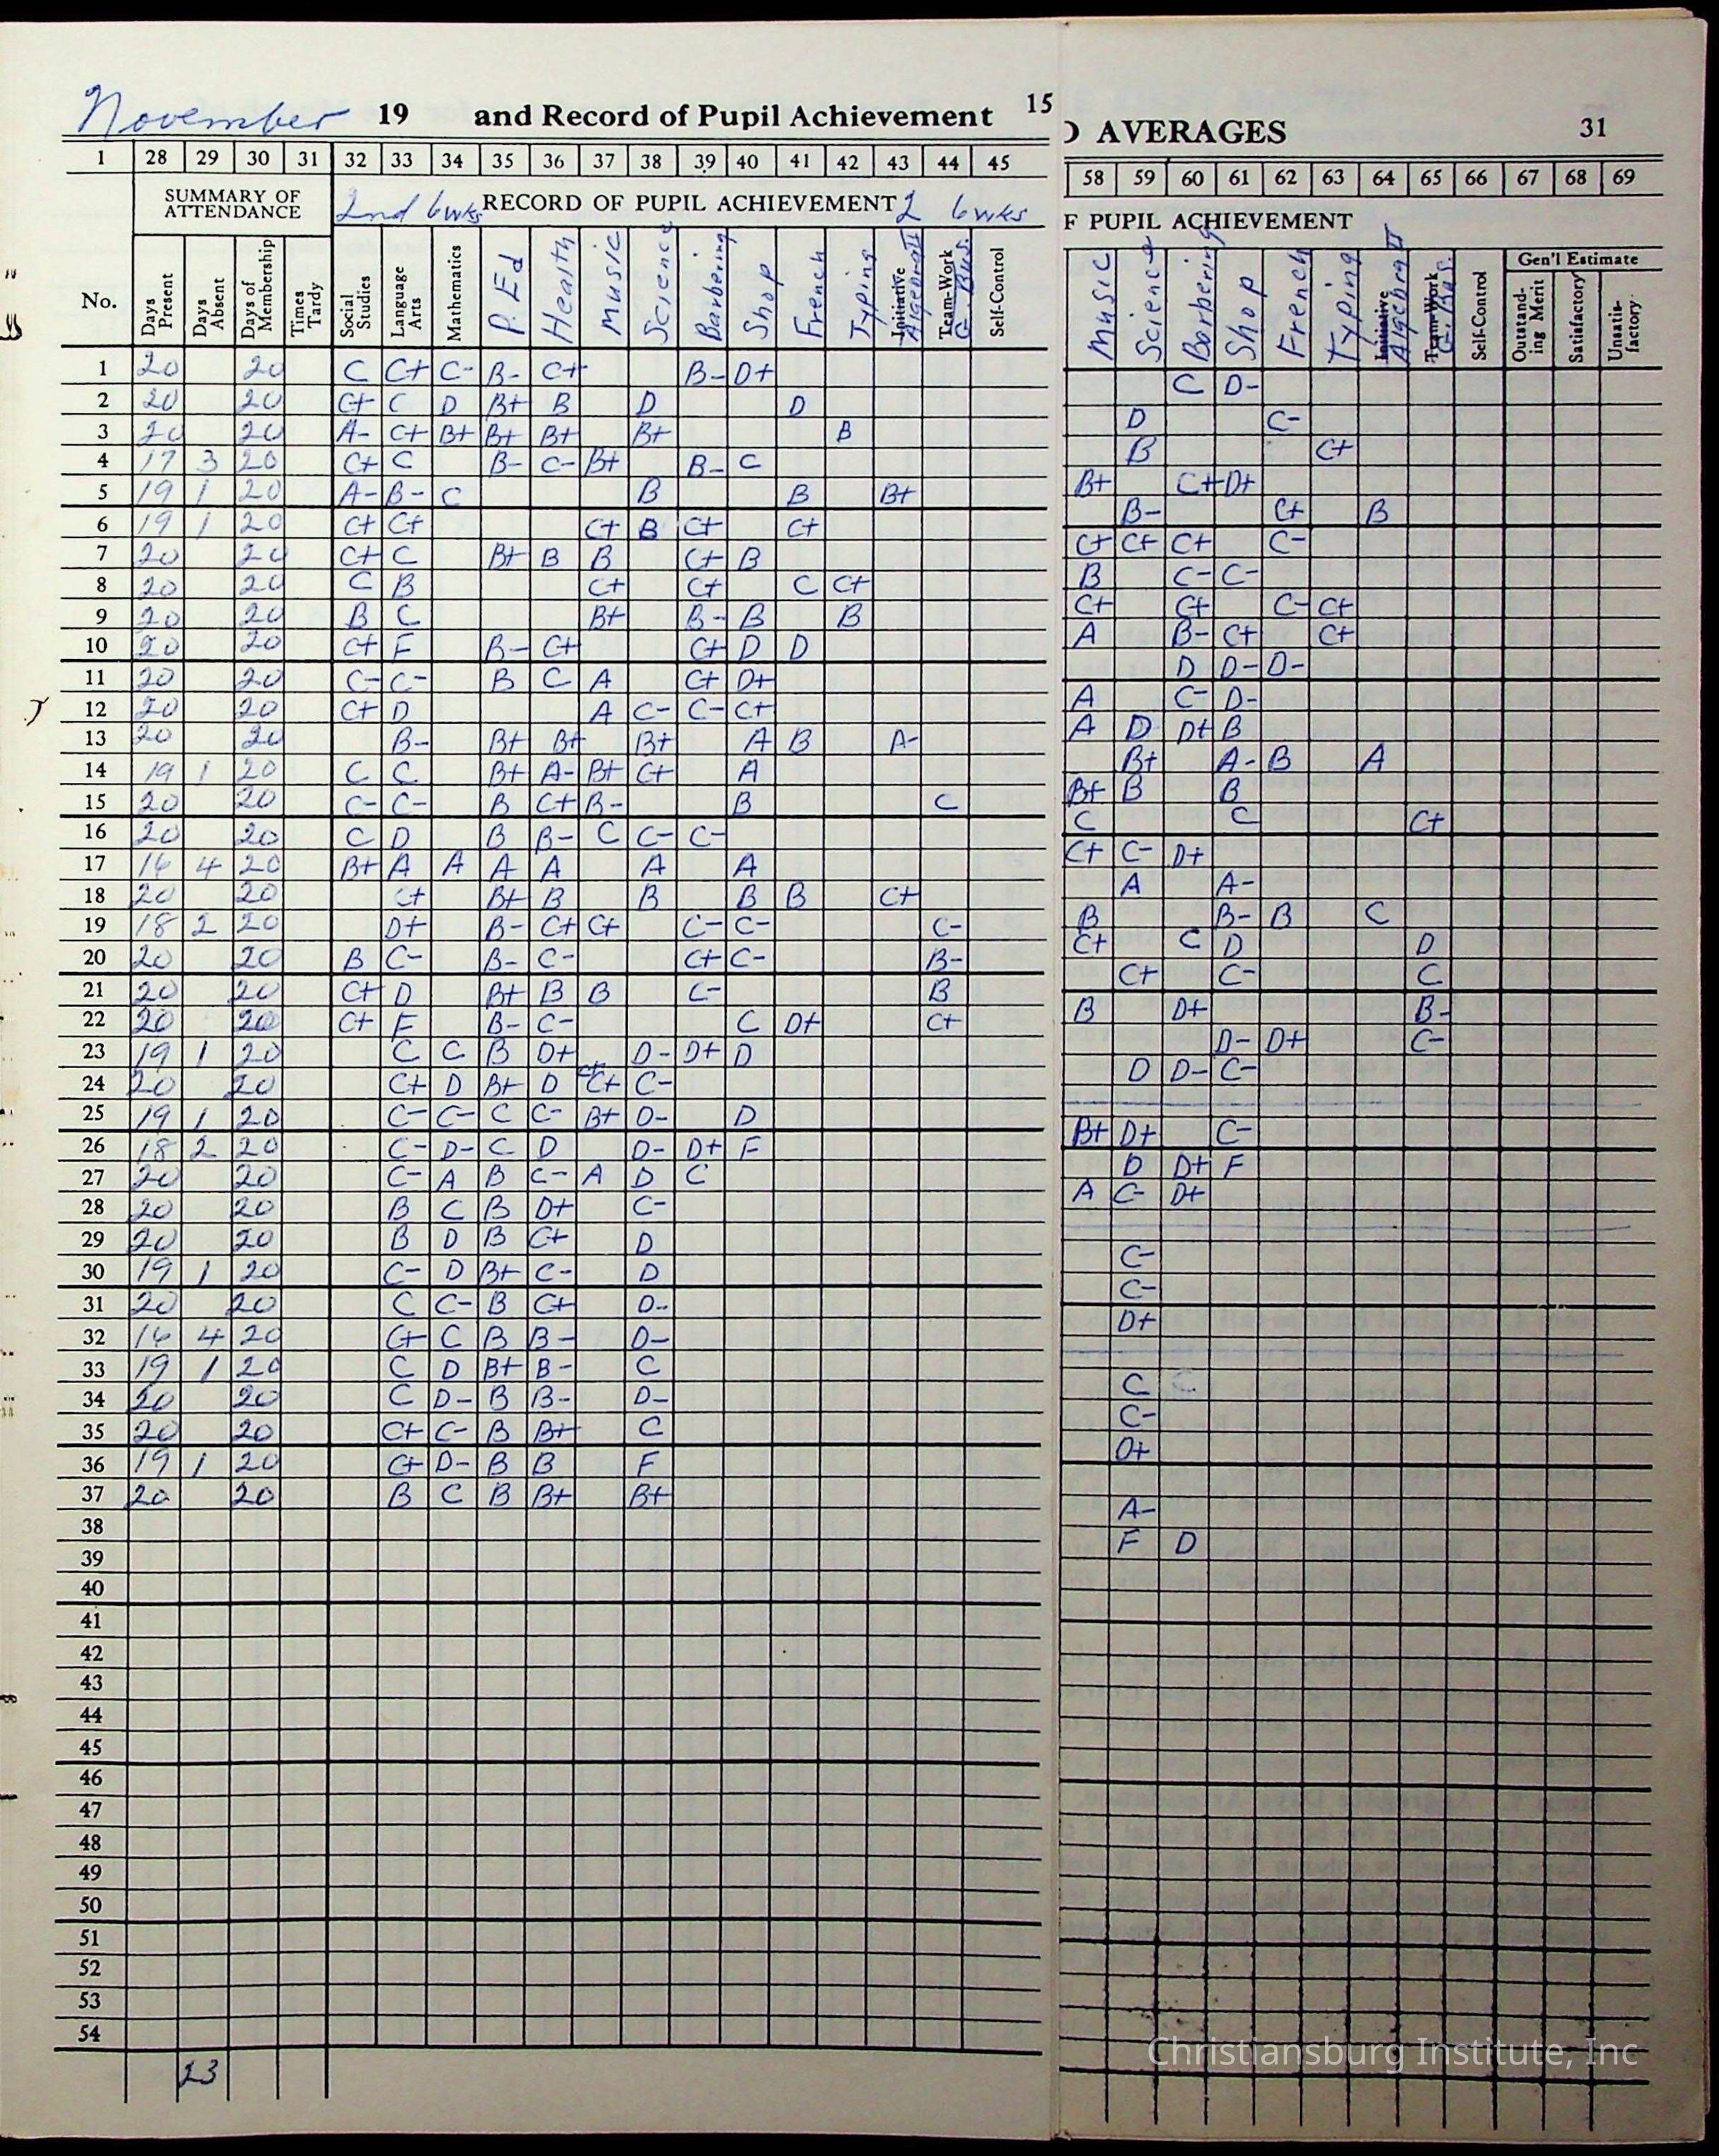 November 19 and Record of Pupil Achievement 15
1 28 29 30 31 32 33 34 35 36 37 38 39 40 41 42 43 44 45
SUMMARY OF ATTENDANCE 2nd 6wks RECORD OF PUPIL ACHIEVEMENT 2 6wks
No. Days Present Days Absent Days of Membership Times Tardy Social Studies Language Arts Mathematics P. Ed Health Music Science Barbering Shop French Typing Initiative Algebra II Team-Work G. Bus. Self-Control
1 20 20 C C+ C- B- C+ B- D+
2 20 20 C+ C D B+ B D D
3 20 20 A- C+ B+ B+ B+ B+ B
4 17 3 20 C+ C B- C- B+ B- C
5 19 1 20 A- B- C B B B+
6 19 1 20 C+ C+ C+ B C+ C+
7 20 20 C+ C B+ B B C+ B
8 20 20 C B C+ C+ C C+
9 20 20 B C B+ B- B B
10 20 20 C+ F B- C+ C+ D D
11 20 20 C- C- B C A C+ D+
12 20 20 C+ D A C- C- C+
13 20 20 B- B+ B+ B+ A B A-
14 19 1 20 C C B+ A- B+ C+ A
15 20 20 C- C- B C+ B- B C
16 20 20 C D B B- C C- C-
17 16 4 20 B+ A A A A A A
18 20 20 C+ B+ B B B B C+
19 18 2 20 D+ B- C+ C+ C- C- C-
20 20 20 B C- B- C- C+ C- B-
21 20 20 C+ D B+ B B C- B
22 20 20 C+ F B- C- C D+ C+
23 19 1 20 C C B D+ D- D+ D
24 20 20 C+ D B+ D C+ C+ C-
25 19 1 20 C- C- C C- B+ D- D
26 18 2 20 C- D- C D D- D+ F
27 20 20 C- A B C- A D C
28 20 20 B C B D+ C-
29 20 20 B D B C+ D
30 19 1 20 C- D B+ C- D
31 20 20 C C- B C+ D-
32 16 4 20 C+ C B B- D-
33 19 1 20 C D B+ B- C
34 20 20 C D- B B- D-
35 20 20 C+ C- B B+ C
36 19 1 20 C+ D- B B F
37 20 20 B C B B+ B+
38
39
40
41
42
43
44
45
46
47
48
49
50
51
52
53
54
23
AVERAGES 31
58 59 60 61 62 63 64 65 66 67 68 69
F PUPIL ACHIEVEMENT
Music Science Barbering Shop French Typing Initiative Algebra II Team-Work G. Bus. Self-Control Gen'l Estimate Outstanding Merit Satisfactory Unsatisfactory
C D-
D C-
B C+
B+ C+ D+
B- C+ B
C+ C+ C+ C-
B C- C-
C+ C+ C- C+
A B- C+ C+
D D- D-
A C- D-
A D D+ B
B+ A- B A
B+ B B
C C C+
C+ C- D+
A A-
B B- B C
C+ C D D
C+ C- C
B D+ B-
D- D+ C-
D D- C-
B+ D+ C-
D D+ F
A C- D+
C-
C-
D+
C
C-
D+
A-
F D
Christiansburg Institute, Inc